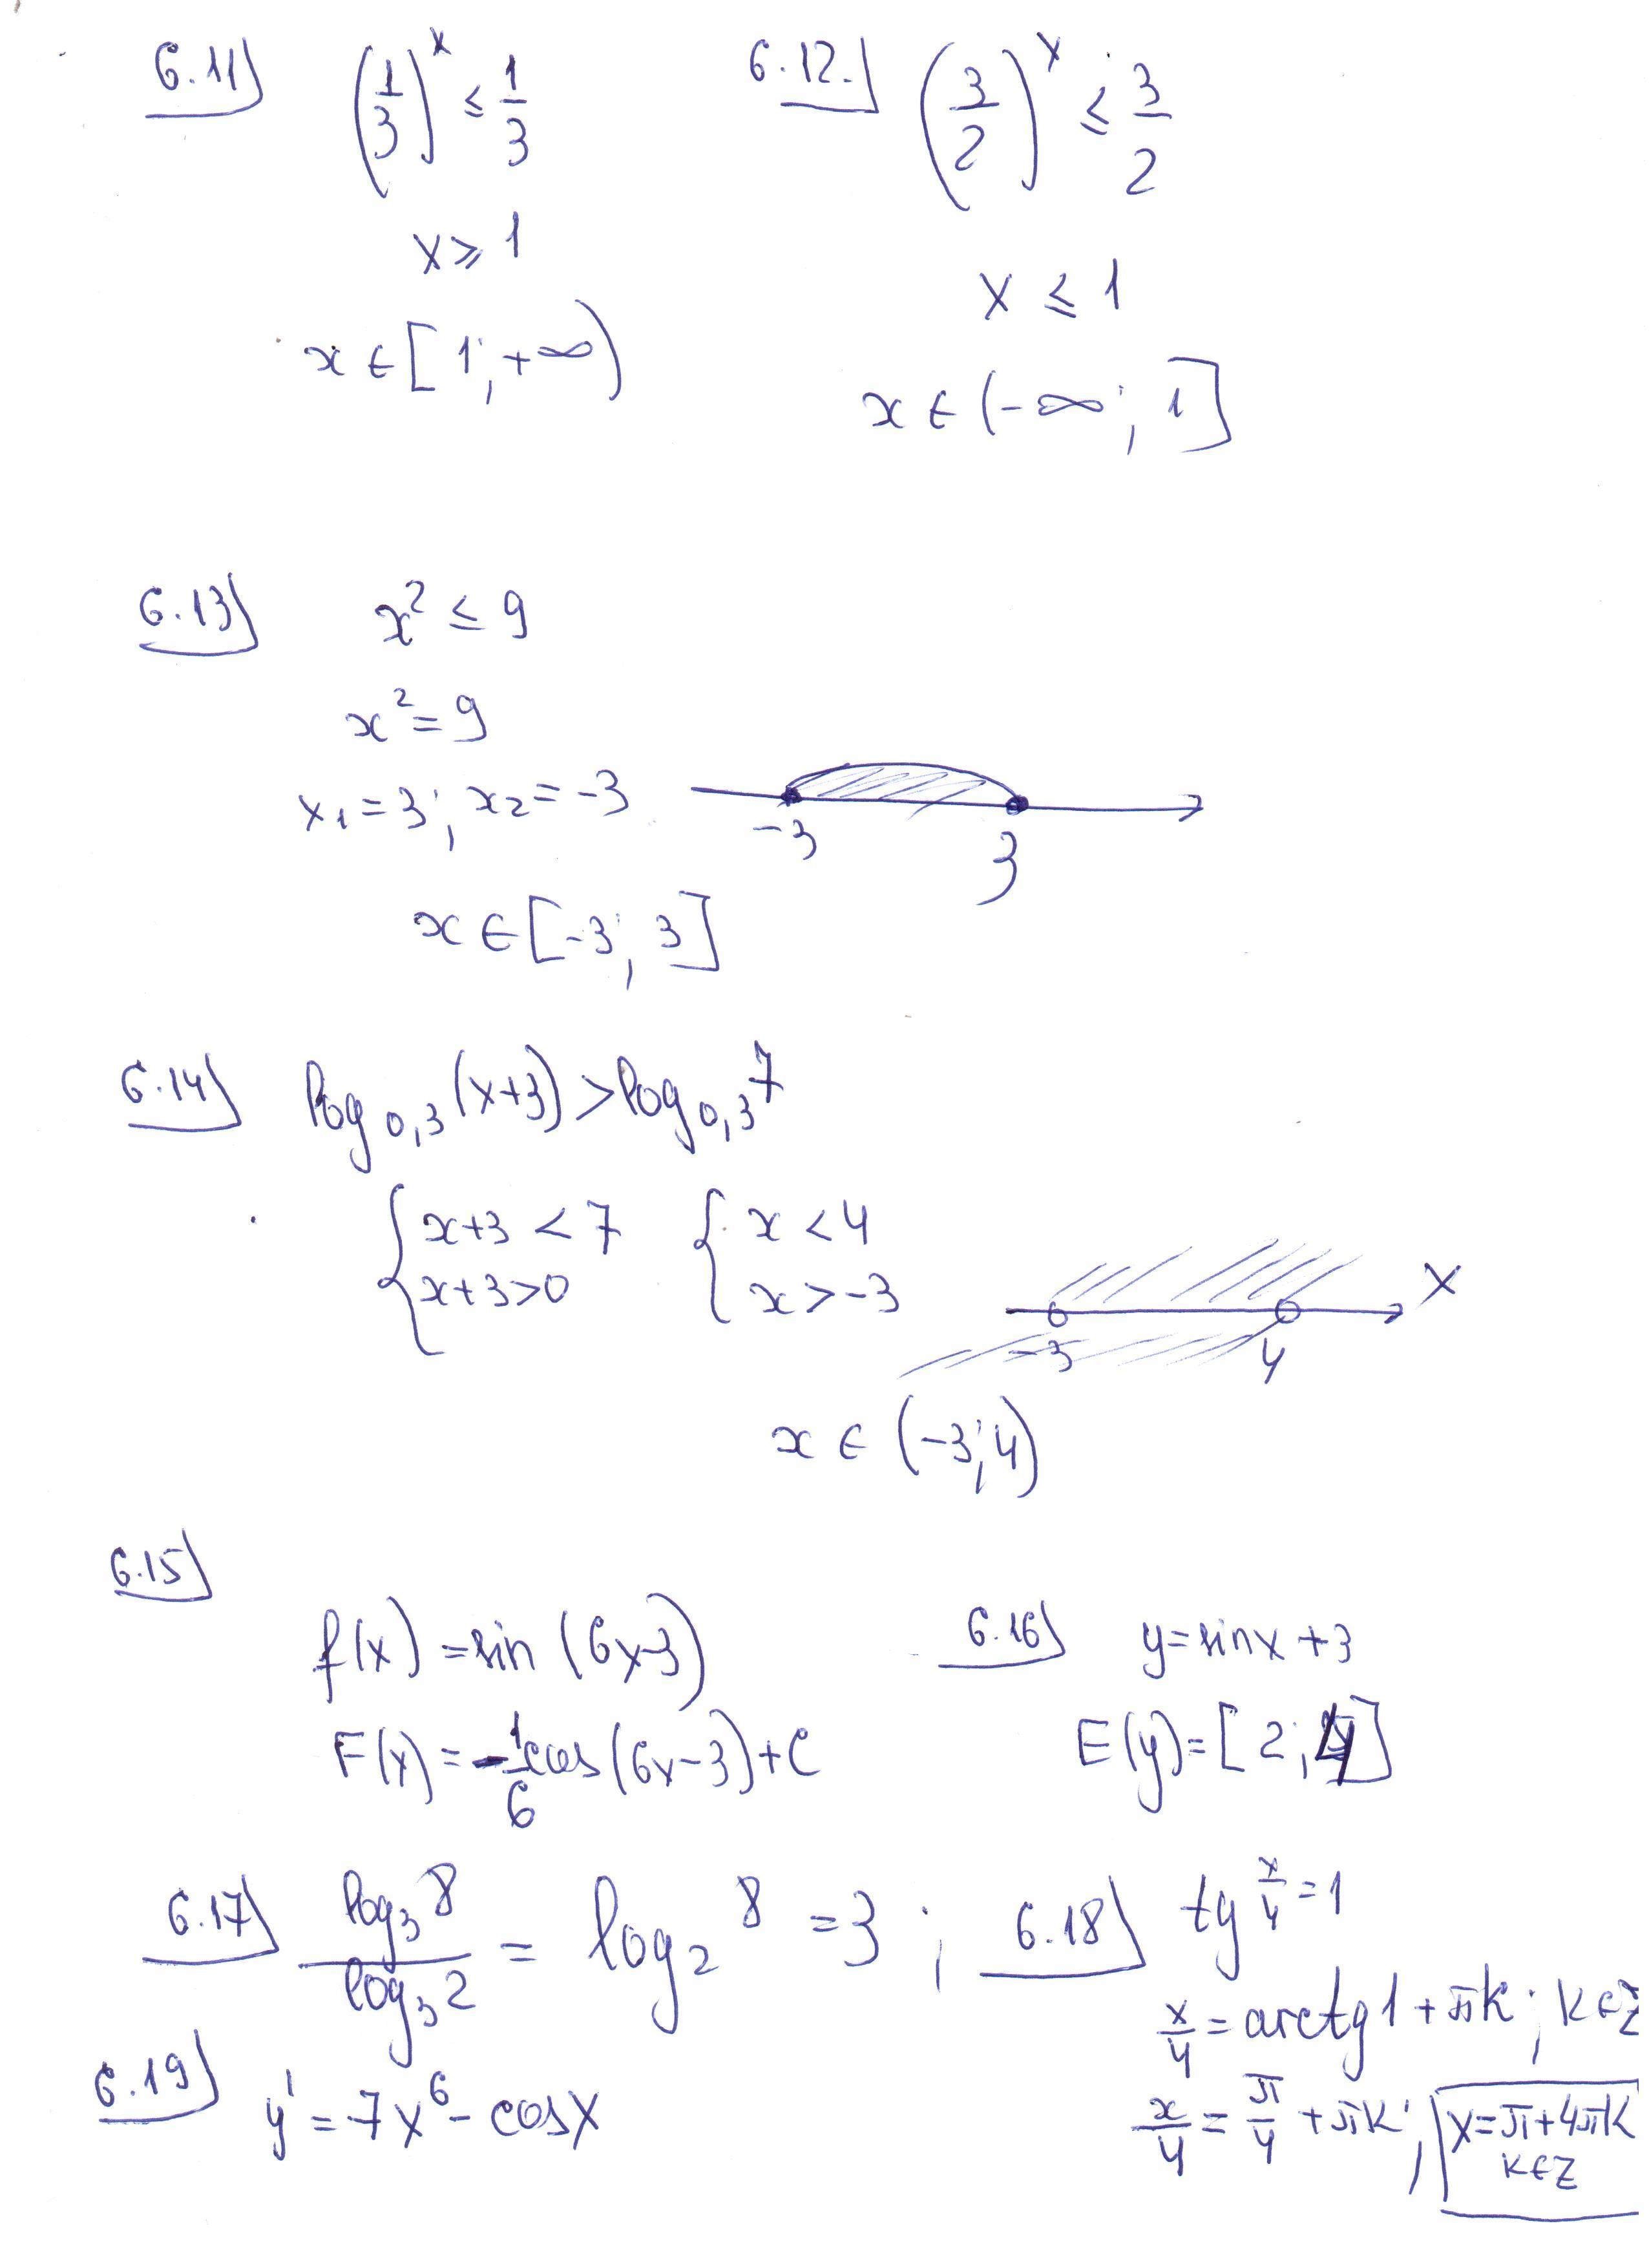 6.11) (1/3)^x ≤ 1/3
x ⩾ 1
x ∈ [1; +∞)
6.12.) (3/2)^x ≤ 3/2
x ≤ 1
x ∈ (-∞; 1]
6.13) x² ≤ 9
x² = 9
x₁ = 3; x₂ = -3
-3 3
x ∈ [-3; 3]
6.14) log₀,₃(x+3) > log₀,₃7
{ x+3 < 7 { x < 4
x+3 > 0 x > -3
x
-3 4
x ∈ (-3; 4)
6.15)
f(x) = sin (6x-3)
F(x) = -1/6 cos(6x-3)+C
6.16) y = sinx + 3
E(y) = [2; 4]
6.17) log₃8 / log₃2 = log₂8 = 3 ;
6.18) tg x/4 = 1
x/4 = arctg1 + πk; k∈Z
x/4 = π/4 + πk; x = π + 4πk
k∈Z
6.19) y' = 7x⁶ - cosx